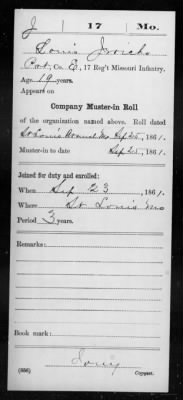 J 17 Mo.
Louis
Pvt, Co. E, 17 Reg't Missouri Infantry.
Age 19 years.
Appears on
Company Muster-in Roll
of the organization named above. Roll dated
St Louis Arsenal Mo Sep 25, 1861.
Muster-in to date Sep 25, 1861.
Joined for duty and enrolled:
When Sep 23, 1861.
Where St Louis Mo
Period 3 years.
Remarks:
Book mark:
(356) Copyist.